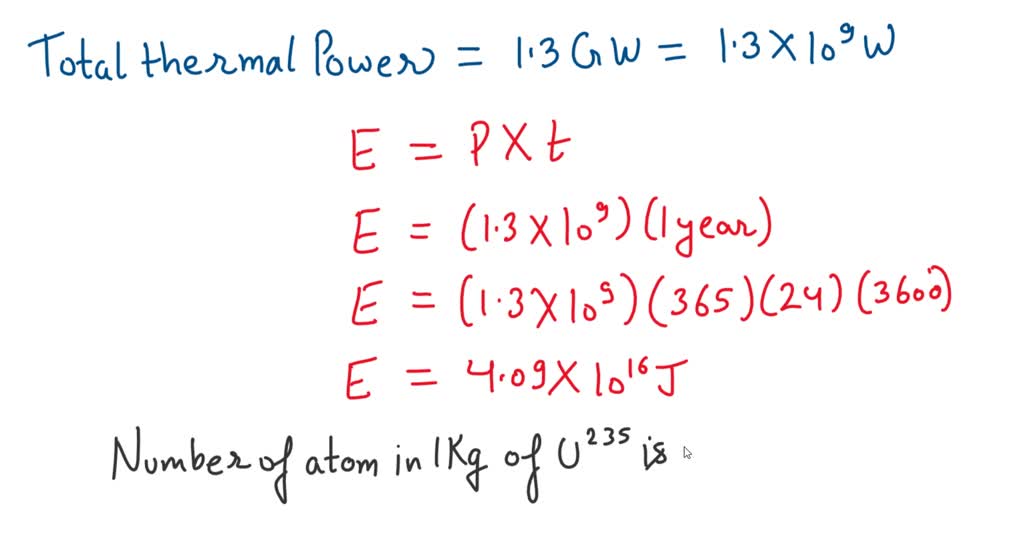 Total thermal Power = 1.3 GW = 1.3 X 10⁹ W
E = P X t
E = (1.3 X 10⁹) (1 year)
E = (1.3 X 10⁹) (365) (24) (3600)
E = 4.09 X 10¹⁶ J
Number of atom in 1 Kg of U²³⁵ is